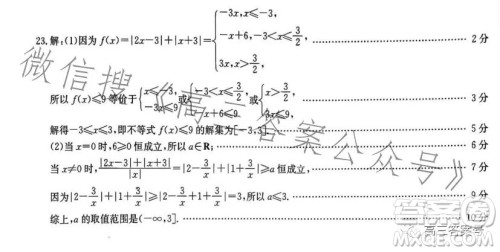 23.解:(1)因为f(x)=|2x-3|+|x+3|={-3x,x≤-3,
-x+6,-3<x≤3/2, 2分
3x,x>3/2,
所以f(x)≤9等价于{x≤-3, -3x≤9或{-3<x≤3/2, -x+6≤9或{x>3/2, 3x≤9, 3分
解得-3≤x≤3,即不等式f(x)≤9的解集为[-3,3]. 5分
(2)当x=0时,6≥0恒成立,所以a∈R; 6分
当x≠0时,|2x-3|+|x+3|/|x|=|2-3/x|+|1+3/x|≥a恒成立, 7分
因为|2-3/x|+|1+3/x|≥|2-3/x+1+3/x|=3,所以a≤3. 9分
综上,a的取值范围是(-∞,3]. 10分
微信搜《高三答案公众号》
答案圈